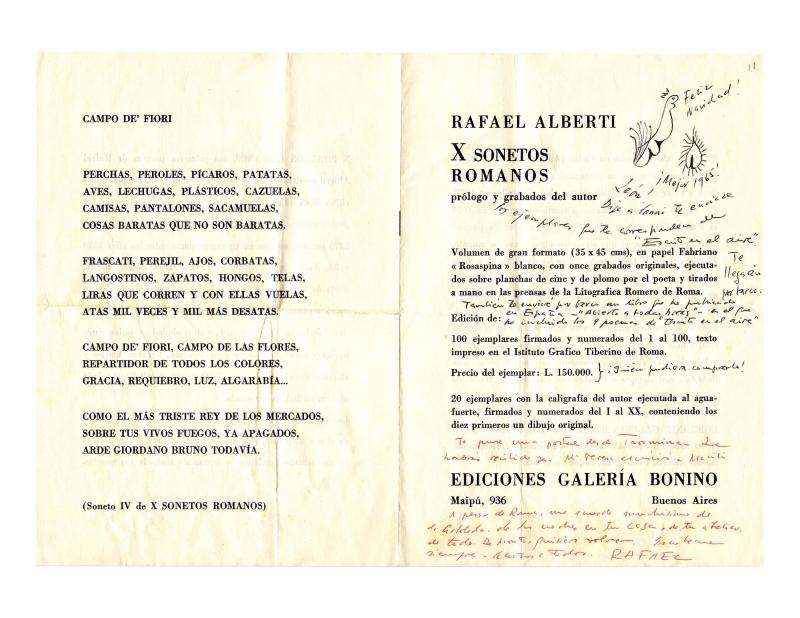 CAMPO DE' FIORI
PERCHAS, PEROLES, PÍCAROS, PATATAS,
AVES, LECHUGAS, PLÁSTICOS, CAZUELAS,
CAMISAS, PANTALONES, SACAMUELAS,
COSAS BARATAS QUE NO SON BARATAS.
FRASCATI, PEREJIL, AJOS, CORBATAS,
LANGOSTINOS, ZAPATOS, HONGOS, TELAS,
LIRAS QUE CORREN Y CON ELLAS VUELAS,
ATAS MIL VECES Y MIL MÁS DESATAS.
CAMPO DE' FIORI, CAMPO DE LAS FLORES,
REPARTIDOR DE TODOS LOS COLORES,
GRACIA, REQUIEBRO, LUZ, ALGARABÍA...
COMO EL MÁS TRISTE REY DE LOS MERCADOS,
SOBRE TUS VIVOS FUEGOS, YA APAGADOS,
ARDE GIORDANO BRUNO TODAVÍA.
(Soneto IV de X SONETOS ROMANOS)
11
Feliz
Navidad!
¡Mejor 1965!
RAFAEL ALBERTI
X SONETOS
ROMANOS
prólogo y grabados del autor
León
Dije a te enviase
los ejemplares que te corresponden de
"Escrito en el aire".
Te
llegarán
por barco.
Volumen de gran formato (35 x 45 cms), en papel Fabriano
« Rosaspina » blanco, con once grabados originales, ejecuta-
dos sobre planchas de cinc y de plomo por el poeta y tirados
a mano en las prensas de la Litografica Romero de Roma.
También te envié por barco un libro que he publicado
en España - "Abierto a todas horas" - en el que
he incluido los 9 poemas de "Escrito en el aire"
Edición de:
100 ejemplares firmados y numerados del 1 al 100, texto
impreso en el Istituto Grafico Tiberino de Roma.
Precio del ejemplar: L. 150.000. } ¡Quién pudiera comprarlo!
20 ejemplares con la caligrafía del autor ejecutada al agua-
fuerte, firmados y numerados del I al XX, conteniendo los
diez primeros un dibujo original.
Te puse una postal desde Taormina. La
habrás recibido ya. Mª Teresa escribió a
EDICIONES GALERÍA BONINO
Maipú, 936 Buenos Aires
A pesar de Roma, me acuerdo muchísimo de
de las noches en tu casa, de tu atelier,
de todo. De pronto, quisiera volver.
siempre. Abrazos a todos. RAFAEL